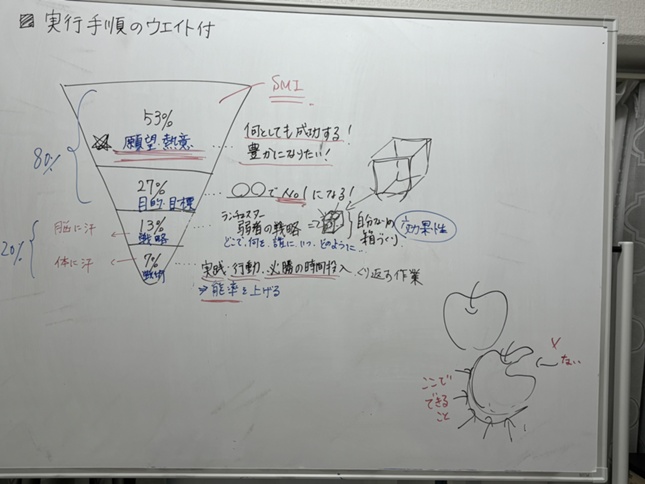 実行手順のウエイト付
SMI
53%
願望・熱意
何としても成功する!
豊かになりたい!
80%
27%
目的・目標
○○でNo.1になる!
13%
戦略
脳に汗
ランチェスター
弱者の戦略
自分なりの
箱づくり
効果性
どこで、何を、誰に、いつ、どのように…
20%
7%
戦術
体に汗
実践・行動・必勝の時間投入
くり返る作業
⇒能率を上げる
ここで
できる
こと
ない